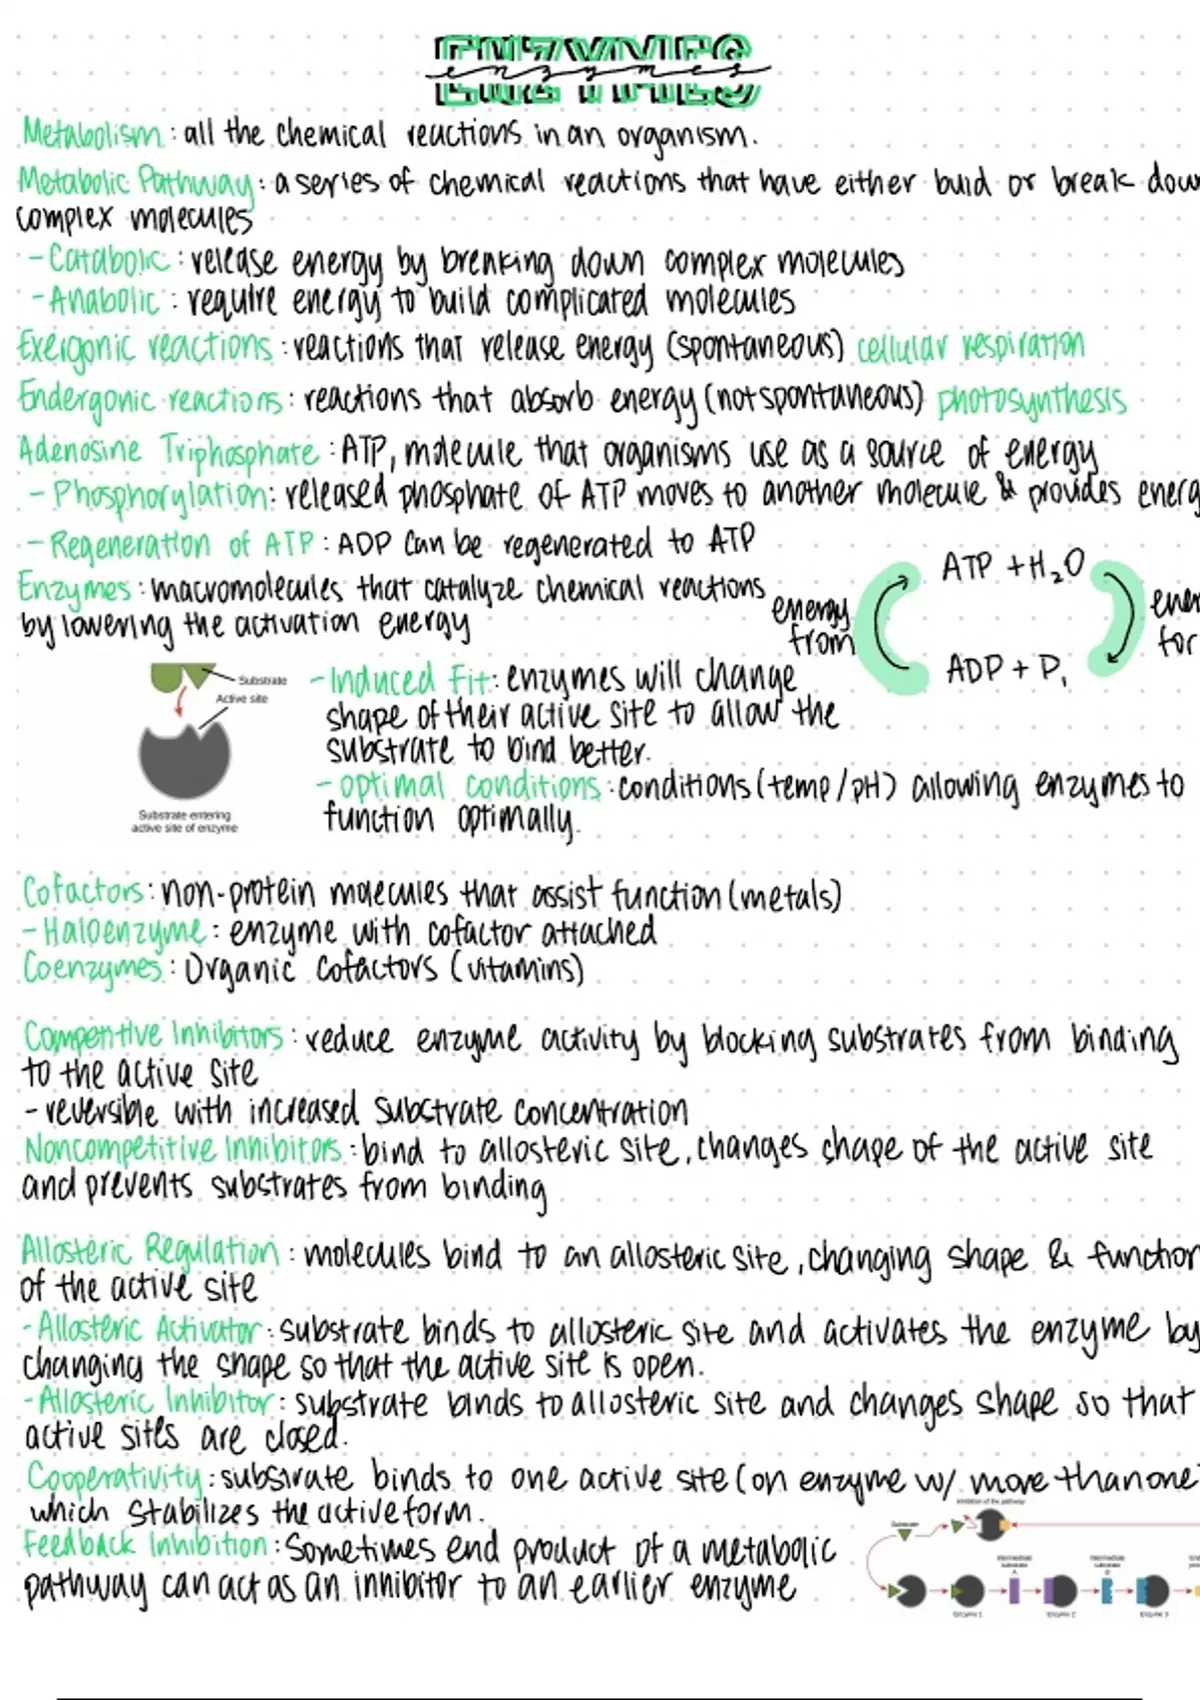 ENZYMES
enzymes
Metabolism: all the chemical reactions in an organism.
Metabolic Pathway: a series of chemical reactions that have either buid or break dow
complex molecules
- Catabolic: release energy by breaking down complex molecules
- Anabolic: require energy to build complicated molecules
Exergonic reactions: reactions that release energy (spontaneous) cellular respiration
Endergonic reactions: reactions that absorb energy (not spontaneous) photosynthesis
Adenosine Triphosphate: ATP, molecule that organisms use as a source of energy
- Phosphorylation: released phosphate of ATP moves to another molecule & provides energ
- Regeneration of ATP: ADP can be regenerated to ATP
Enzymes: macromolecules that catalyze chemical reactions
by lowering the activation energy
ATP + H₂O
energy
from
ener
for
ADP + Pi
Substrate
Active site
Substrate entering
active site of enzyme
- Induced Fit: enzymes will change
shape of their active site to allow the
substrate to bind better.
- optimal conditions: conditions (temp/pH) allowing enzymes to
function optimally.
Cofactors: non-protein molecules that assist function (metals)
- Haloenzyme: enzyme with cofactor attached
Coenzymes: Organic cofactors (vitamins)
Competitive Inhibitors: reduce enzyme activity by blocking substrates from binding
to the active site
- reversible with increased substrate concentration
Noncompetitive Inhibitors: bind to allosteric site, changes shape of the active site
and prevents substrates from binding
Allosteric Regulation: molecules bind to an allosteric site, changing shape & function
of the active site
- Allosteric Activator: substrate binds to allosteric site and activates the enzyme by
changing the shape so that the active site is open.
- Allosteric Inhibitor: substrate binds to allosteric site and changes shape so that
active sites are closed.
Cooperativity: substrate binds to one active site (on enzyme w/ more than one
which stabilizes the active form.
Feedback Inhibition: Sometimes end product of a metabolic
pathway can act as an inhibitor to an earlier enzyme
Inhibition of the pathway
Substrate
Intermediate
substrate
A
Intermediate
substrate
B
Enzyme 1
Enzyme 2
Enzyme 3